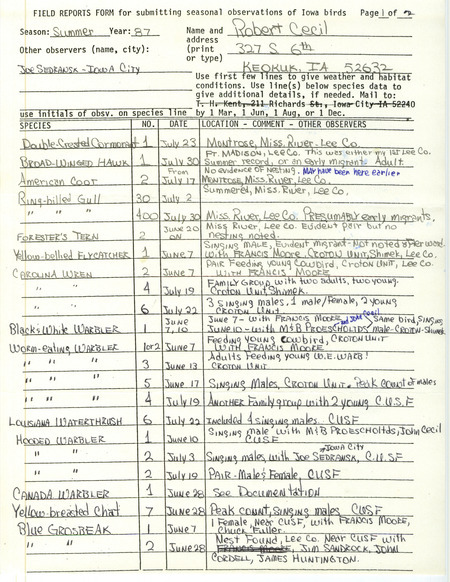 FIELD REPORTS FORM for submitting seasonal observations of Iowa birds Page 1 of 2
Season: Summer Year: 87 Name and address (print or type) Robert Cecil
327 S 6th
Keokuk, IA 52632
Other observers (name, city):
Joe Sedransk - Iowa City
Use first few lines to give weather and habitat
conditions. Use line(s) below species data to
give additional details, if needed. Mail to:
T. H. Kent, 211 Richards St., Iowa City IA 52240
use initials of obsv. on species line by 1 Mar, 1 Jun, 1 Aug, or 1 Dec.
SPECIES NO. DATE LOCATION - COMMENT - OTHER OBSERVERS
Double-Crested Cormorant 1 July 23 Montrose, Miss. River - Lee Co.
Broad-winged Hawk 1 July 30 Ft. Madison, Lee Co. This was either my 1st Lee Co.
Summer record, or an early migrant. Adult.
American Coot 2 From July 17 No evidence of nesting. May have been here earlier
Montrose, Miss. River, Lee Co.
Ring-billed Gull 30 July 2 Summered, Miss. River, Lee Co.
" " 400 July 30 Miss. River, Lee Co. Presumably early migrants.
Forester's Tern 2 June 20 on Miss River, Lee Co. Evident pair but no
nesting noted.
Yellow-bellied Flycatcher 1 June 7 Singing male, Evident migrant - Not noted afterward.
With Francis Moore, Croton Unit, Shimek, Lee Co.
Carolina Wren 2 June 7 Pair Feeding young Cowbird, Croton Unit, Lee Co.
With Francis Moore
4 July 19 Family group with two adults, two young.
Croton Unit, Shimek.
6 July 22 3 singing males, 1 male/female, 2 young
Croton Unit
Black & White Warbler 1 June 7, 10 June 7 - with Francis Moore and John Cecil Same bird, singing
June 10 - with M & B Proescholdt male - Croton - Shimek
Worm-eating Warbler 1 or 2 June 7 Feeding young cowbird, Croton Unit
With Francis Moore
" " 3 June 13 Adults Feeding young W.E. Warb!
Croton Unit
" " 5 June 17 Singing Males, Croton Unit. Peak count of males
" " 4 July 19 Another Family group with 2 young C.U.S.F
Louisiana Waterthrush 6 July 22 Included 4 singing males. CUSF
Hooded Warbler 1 June 10 Singing male with M & B Proescholdt, John Cecil
CUSF
" " 2 July 3 Singing males, with Joe Sedransk, Iowa City C.U.SF
" " 2 July 19 Pair - Male & Female, CUSF
Canada Warbler 1 June 28 See Documentation
Yellow-breasted Chat 7 June 28 Peak count, singing males CUSF
Blue Grosbeak 1 June 7 1 Female, Near CUSF, with Francis Moore,
Chuck Fuller.
" " 2 June 28 Nest Found, Lee Co. Near CUSF with
Francis Moore, Jim Sandrock, John
Cordell, James Huntington.